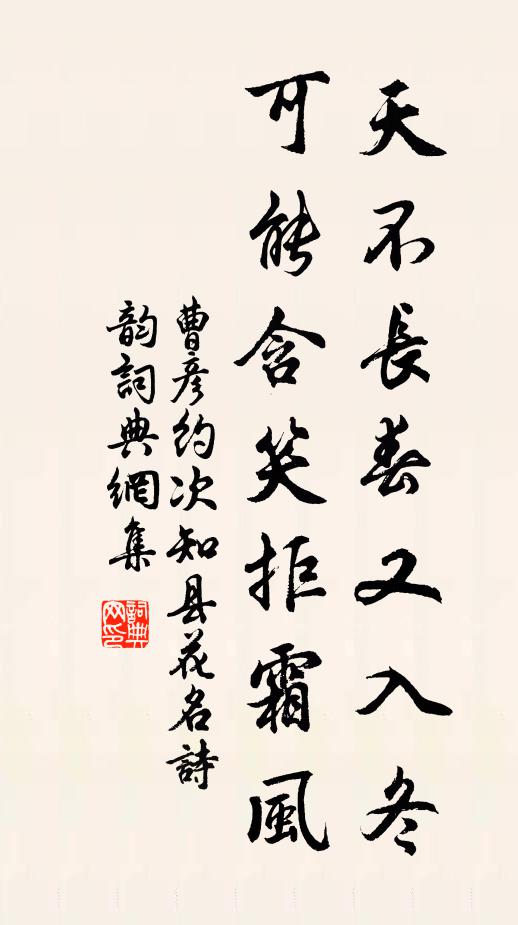 天不長春又入冬
可能含笑拒霜風
曹彥約次知县花名詩
韵詞典網集
詞典网印